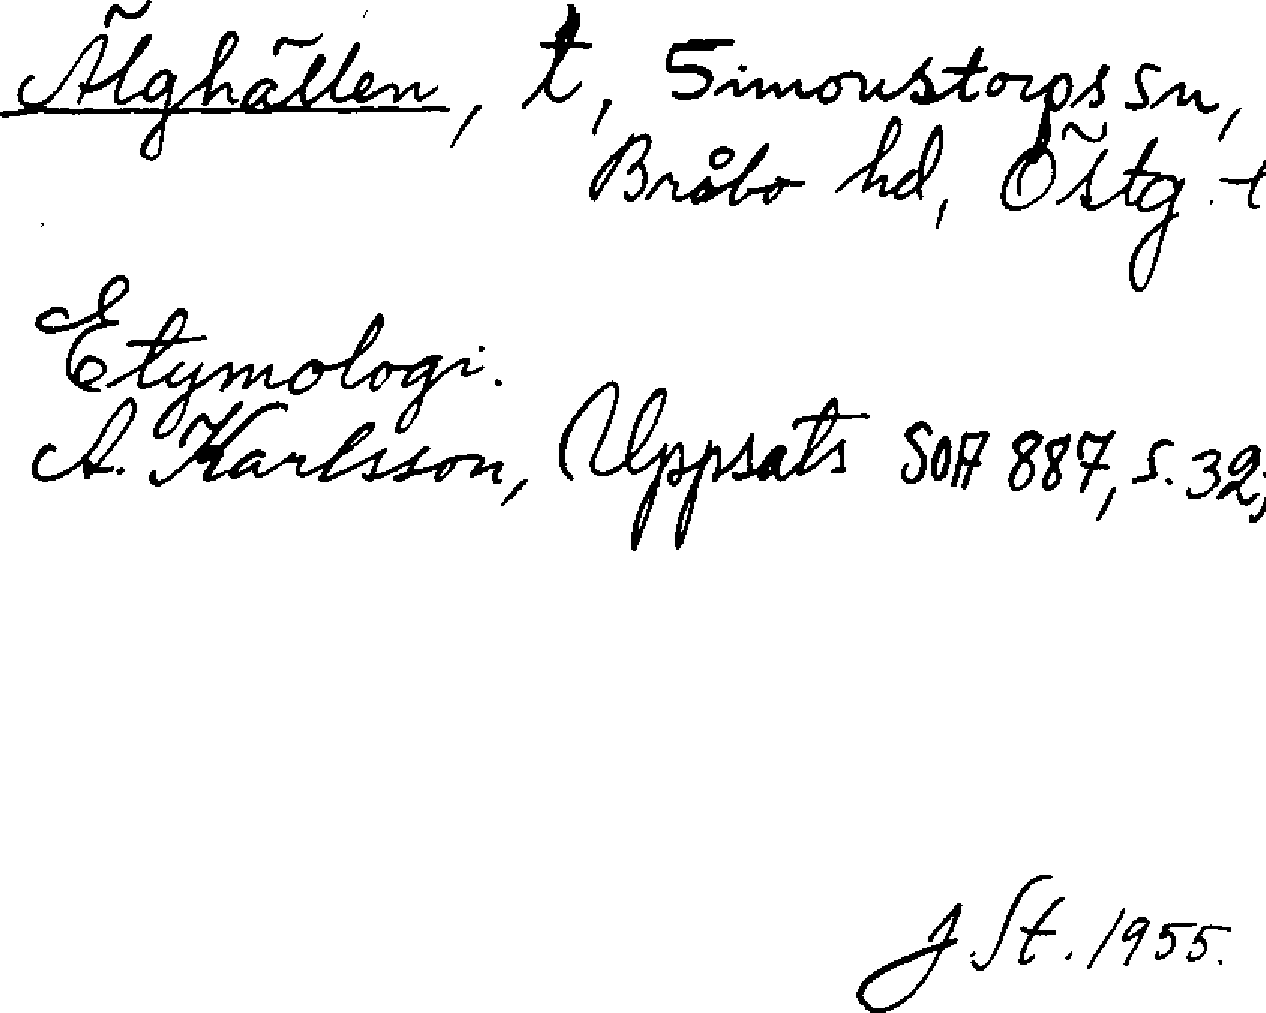 Älghällen, t, Simonstorps sn,
Bråbo hd, Östg. t
Etymologi.
A. Karlsson, Uppsats SOA 887, s. 32;
J. St. 1955.